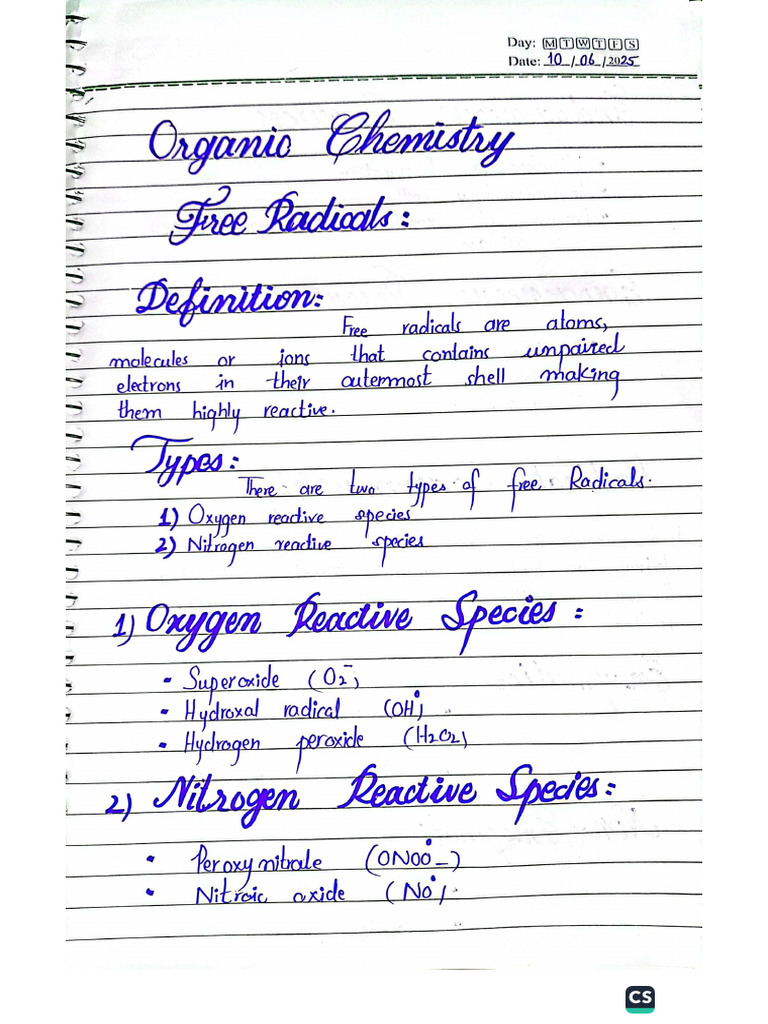 Day: M T W T F S
Date: 10 / 06 / 2025
Organic Chemistry
Free Radicals:
Definition:
Free radicals are atoms,
molecules or ions that contains unpaired
electrons in their outermost shell making
them highly reactive.
Types:
There are two types of free Radicals.
1) Oxygen reactive species
2) Nitrogen reactive species
1) Oxygen Reactive Species:
• Superoxide (O2⁻)
• Hydroxal radical (OH•)
• Hydrogen peroxide (H2O2)
2) Nitrogen Reactive Species:
• Peroxynitrate (ONOO•-)
• Nitroic oxide (NO•)
CS